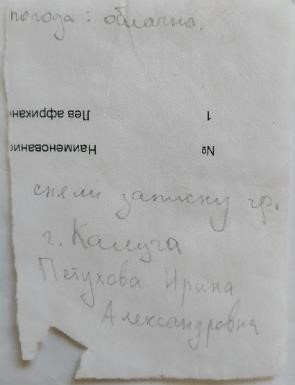 погода: облачно.
Лев африкан 1
Наименование №
сняли записку гр.
г. Калуга
Петухова Ирина
Александровна